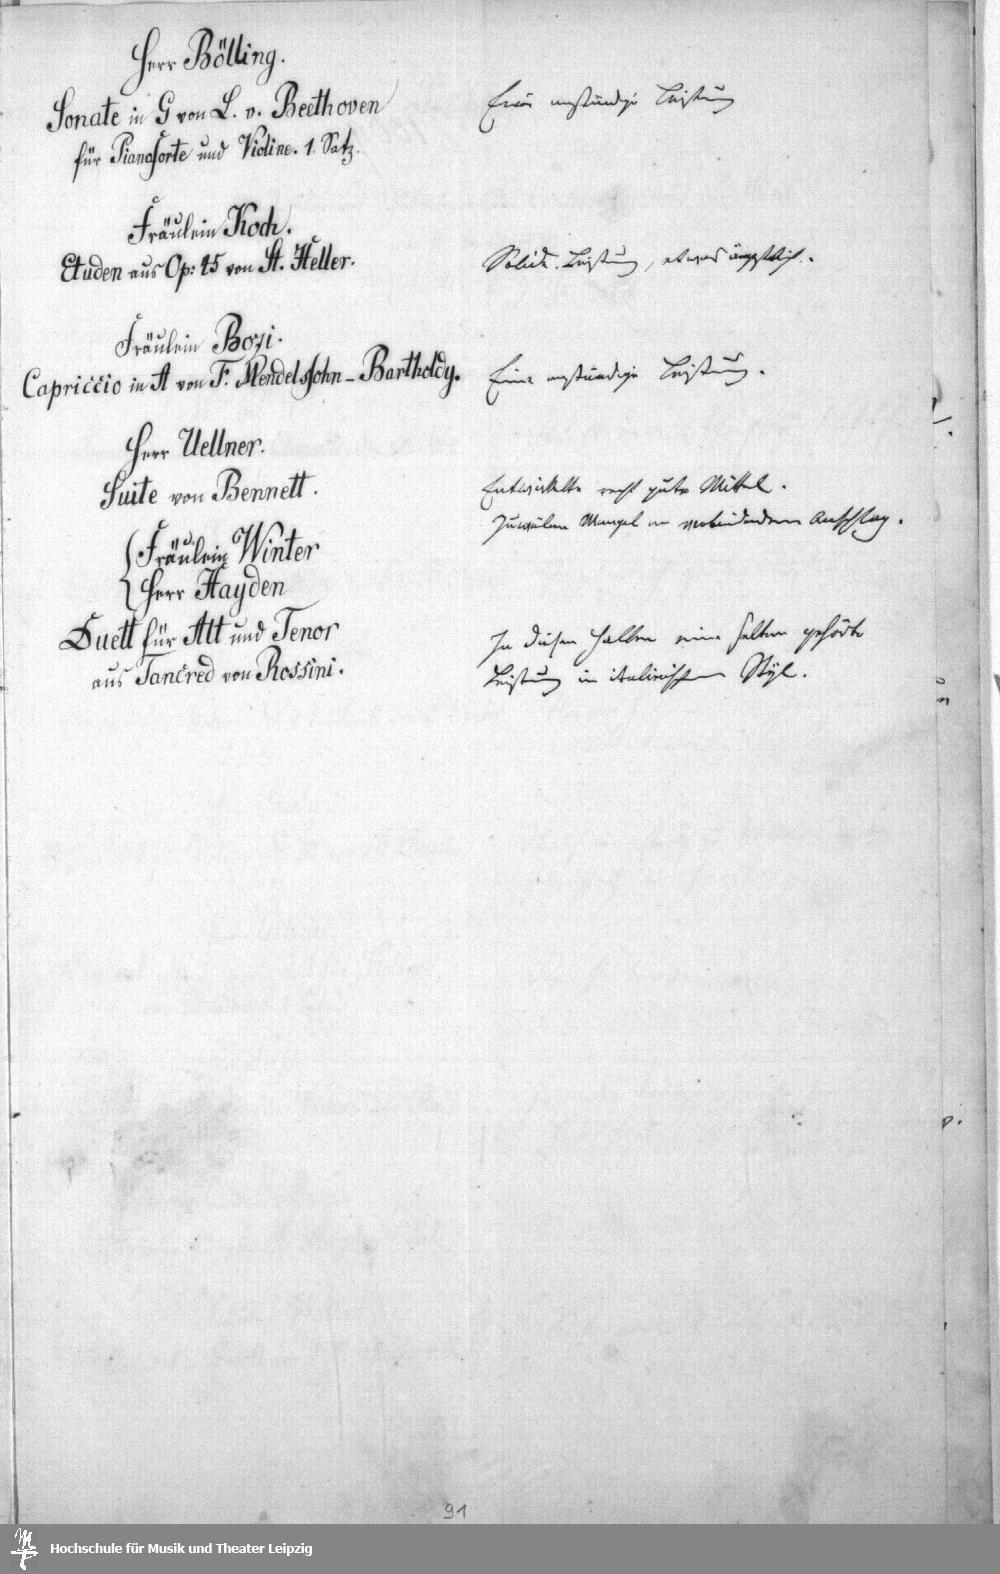 Herr Bölling.
Sonate in G von L. v. Beethoven
für Pianoforte und Violine. 1. Satz.
Eine anständige Leistung
Fräulein Koch.
Etuden aus Op: 45 von St. Heller.
Solide Leistung, etwas ängstlich.
Fräulein Bozi.
Capriccio in A von F. Mendelssohn-Bartholdy.
Eine anständige Leistung.
Herr Uellner.
Suite von Bennett.
Entwickelte recht gute Mittel.
Zuweilen Mangel an verbindendem Anschlag.
Fräulein Winter
Herr Hayden
Duett für Alt und Tenor
aus Tancred von Rossini.
In diesen Hallen eine selten gehörte
Leistung im italienischen Styl.
91
Hochschule für Musik und Theater Leipzig